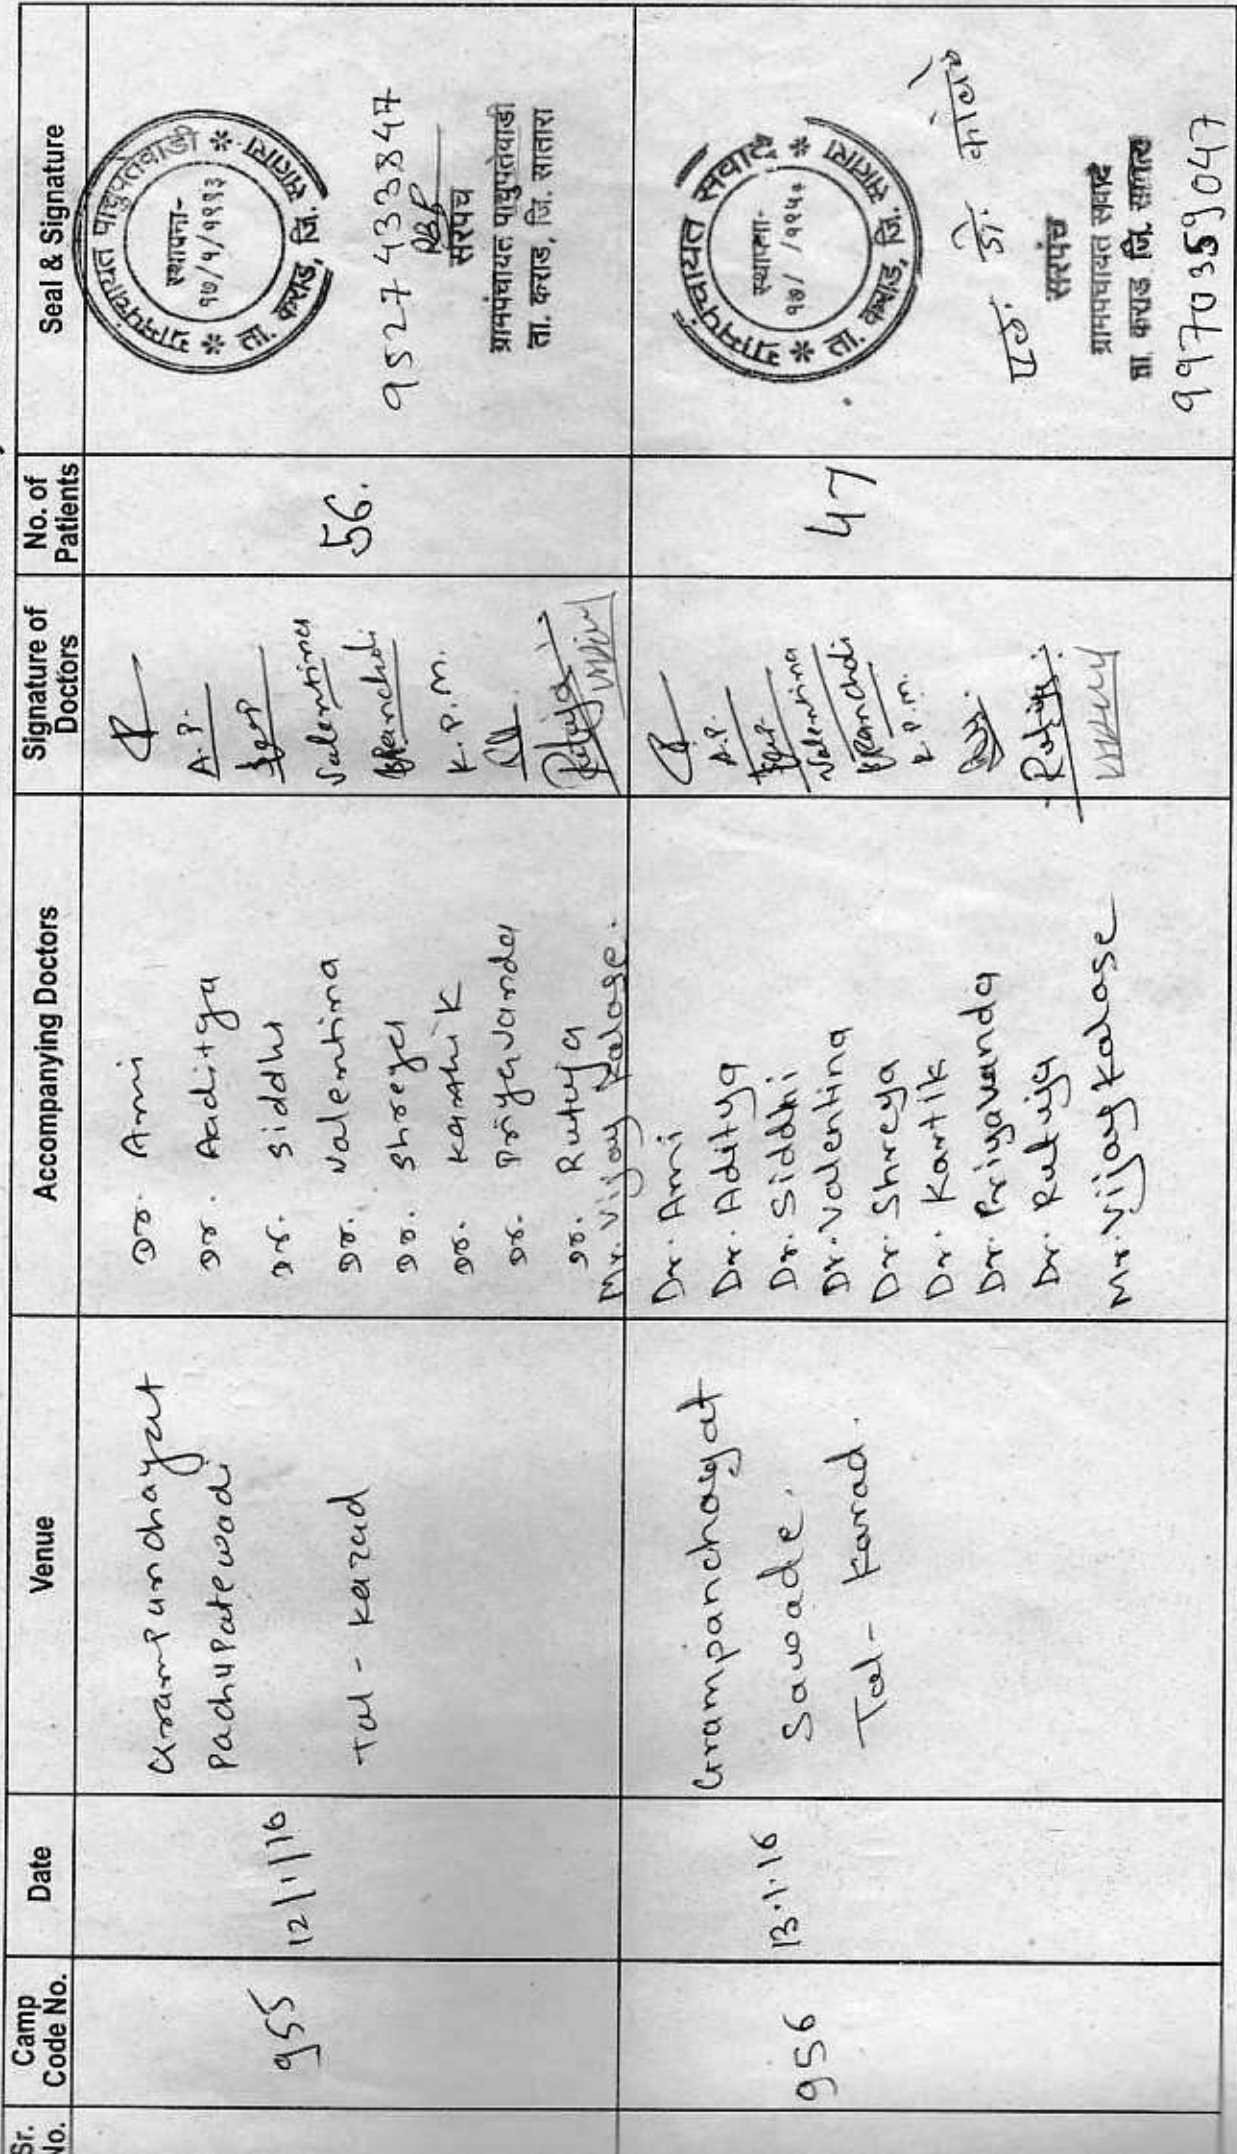 Sr. No.
Camp Code No.
Date
Venue
Accompanying Doctors
Signature of Doctors
No. of Patients
Seal & Signature
955
12/1/16
Grampanchayat
Pachupatewadi
Tal - Karad
Dr. Ami
Dr. Aaditya
Dr. Siddhi
Dr. Valentina
Dr. Shreya
Dr. Karthik
Dr. Priyavanda
Dr. Rutuja
Mr. Vijay Kalase.
A.P.
Valentina
BPancholi
K.P.M.
Rutuja
56.
ग्रामपंचायत पाचुपतेवाडी
स्थापना-
ता. कराड, जि. सातारा
9527433847
सरपंच
ग्रामपंचायत पाचुपतेवाडी
ता. कराड, जि. सातारा
956
13.1.16
Grampanchayat
Sawade.
Tal - Karad.
Dr. Ami
Dr. Aditya
Dr. Siddhi
Dr. Valentina
Dr. Shreya
Dr. Kartik
Dr. Priyavanda
Dr. Rutuja
Mr. Vijay Kalase
A.P.
Valentina
BPancholi
K.P.M.
Rutuja
47
ग्रामपंचायत सवादे
स्थापना-
ता. कराड, जि. सातारा
सरपंच
ग्रामपंचायत सवादे
ता. कराड जि. सातारा
9970359047